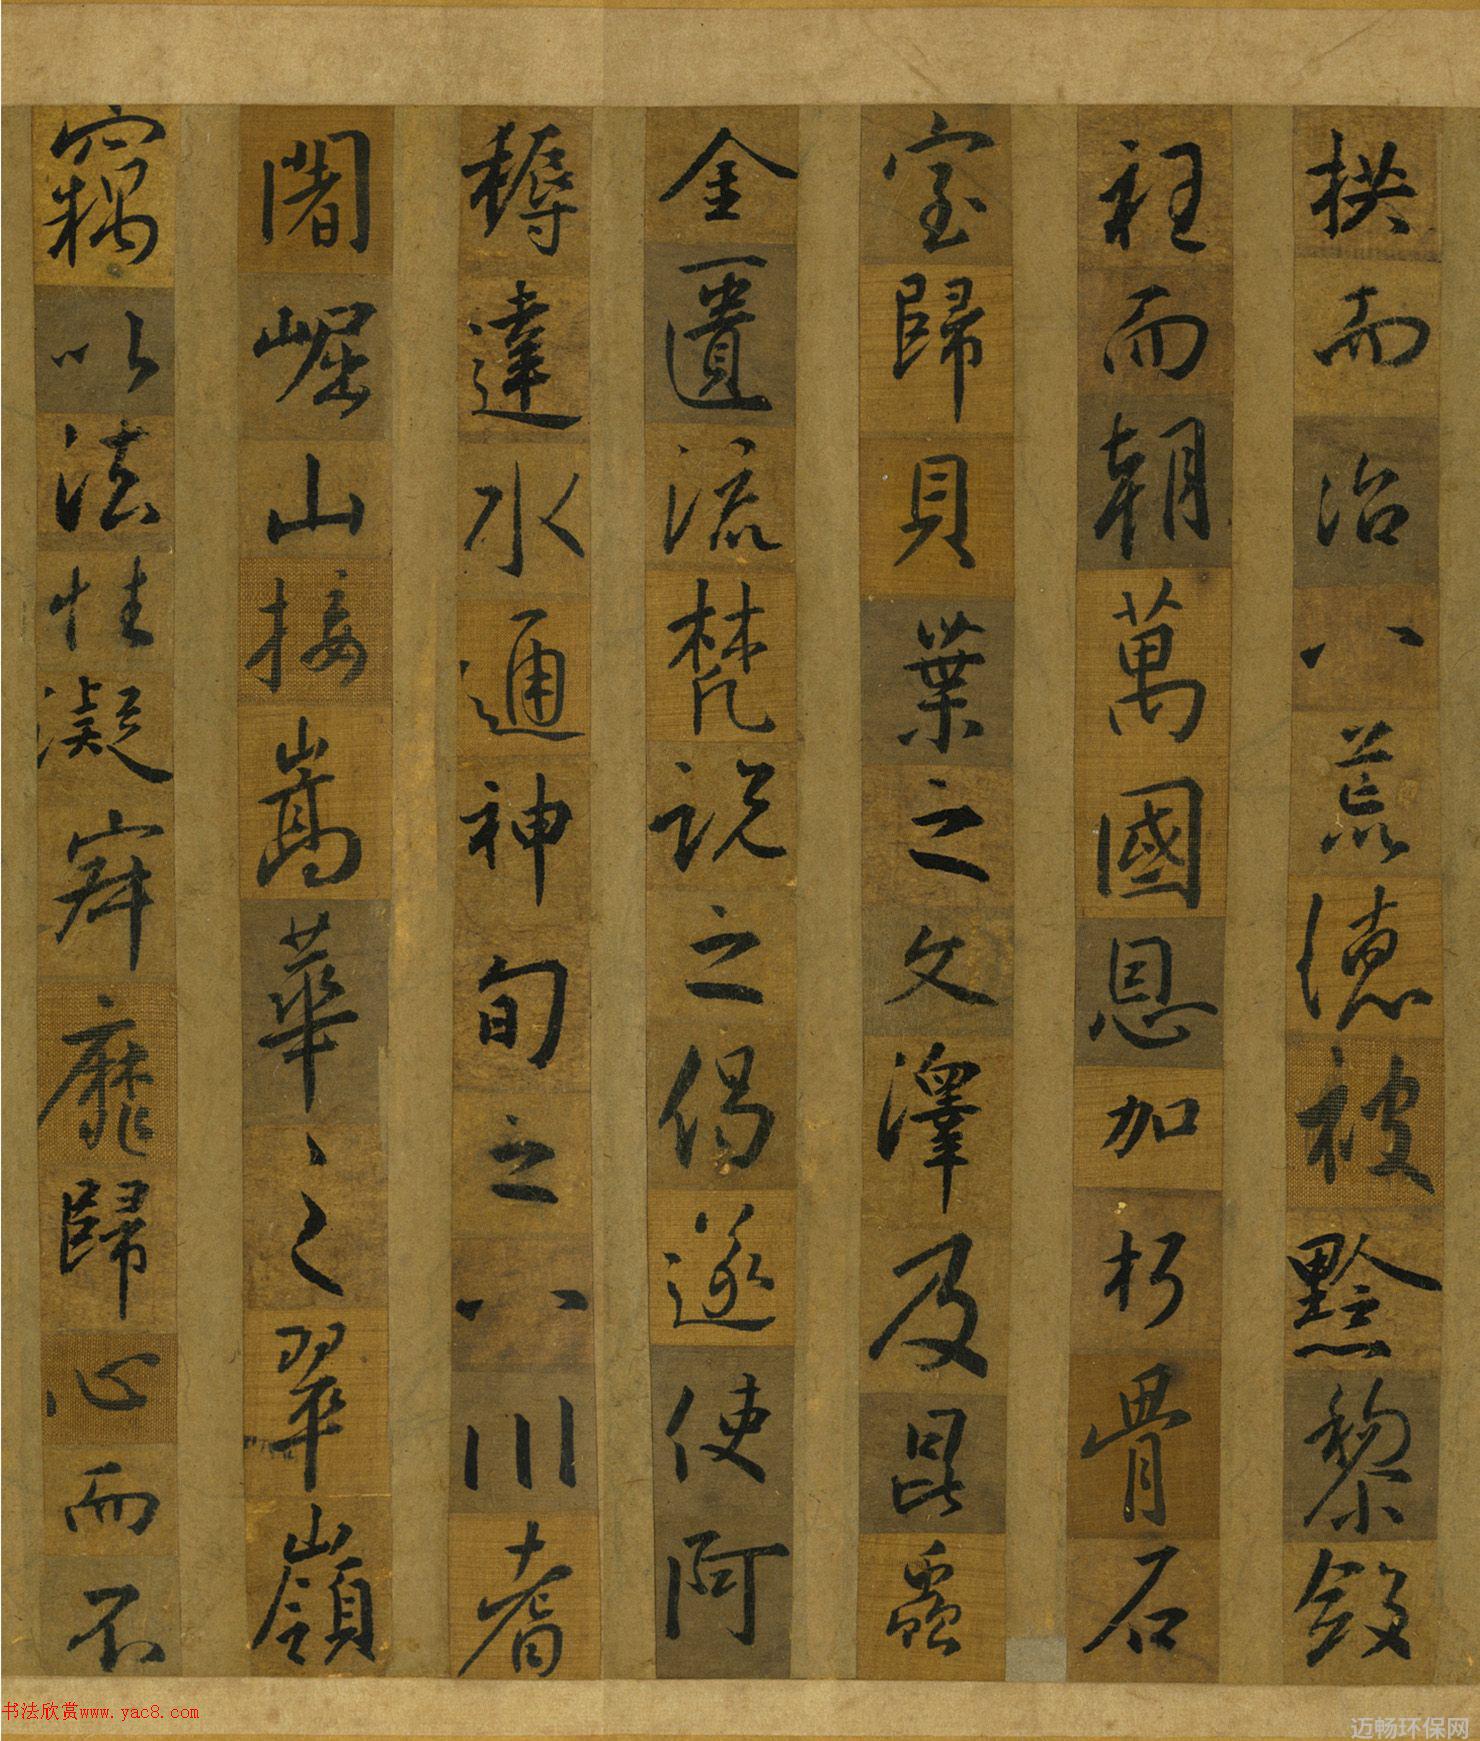 拱而治八荒德被黔黎斂
衽而朝萬國恩加朽骨石
室歸貝葉之文澤及昆蟲
金匱流梵說之偈遂使阿
耨達水通神旬之八川耆
闍崛山接嵩華之翠嶺
竊以法性凝寂靡歸心而不
书法欣赏www.yac8.com
迈畅环保网